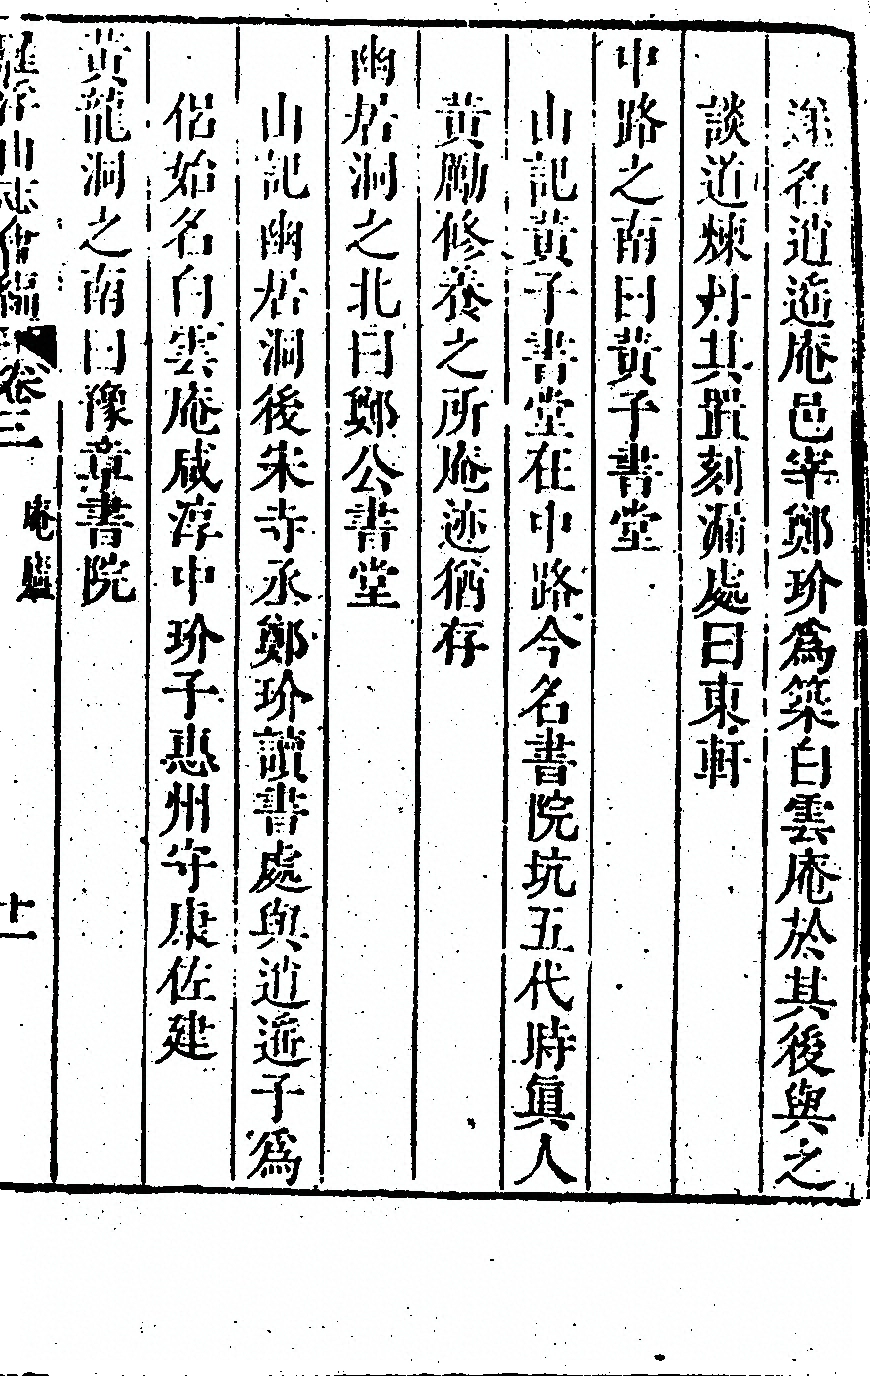 遂名逍遙庵邑宰鄭玠爲築白雲庵於其後與之
談道煉丹其置刻漏處曰東軒
中路之南曰黃子書堂
山記黃子書堂在中路今名書院坑五代時眞人
黃勵修養之所庵迹猶存
幽居洞之北曰鄭公書堂
山記幽居洞後宋寺丞鄭玠讀書處與逍遙子爲
侶始名白雲庵咸淳中玠子惠州守康佐建
黃龍洞之南曰豫章書院
羅浮山志會編 卷三 庵 十一